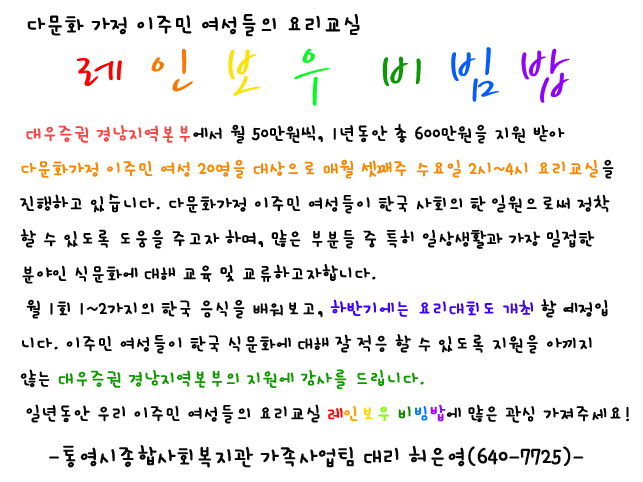 다문화 가정 이주민 여성들의 요리교실
레인보우 비빔밥
대우증권 경남지역본부에서 월 50만원씩, 1년동안 총 600만원을 지원 받아
다문화가정 이주민 여성 20명을 대상으로 매월 셋째주 수요일 2시~4시 요리교실을
진행하고 있습니다. 다문화가정 이주민 여성들이 한국 사회의 한 일원으로써 정착
할 수 있도록 도움을 주고자 하며, 많은 부분들 중 특히 일상생활과 가장 밀접한
분야인 식문화에 대해 교육 및 교류하고자합니다.
월 1회 1~2가지의 한국 음식을 배워보고, 하반기에는 요리대회도 개최 할 예정입
니다. 이주민 여성들이 한국 식문화에 대해 잘 적응 할 수 있도록 지원을 아끼지
않는 대우증권 경남지역본부의 지원에 감사를 드립니다.
일년동안 우리 이주민 여성들의 요리교실 레인보우 비빔밥에 많은 관심 가져주세요!
-통영시종합사회복지관 가족사업팀 대리 허은영(640-7725)-